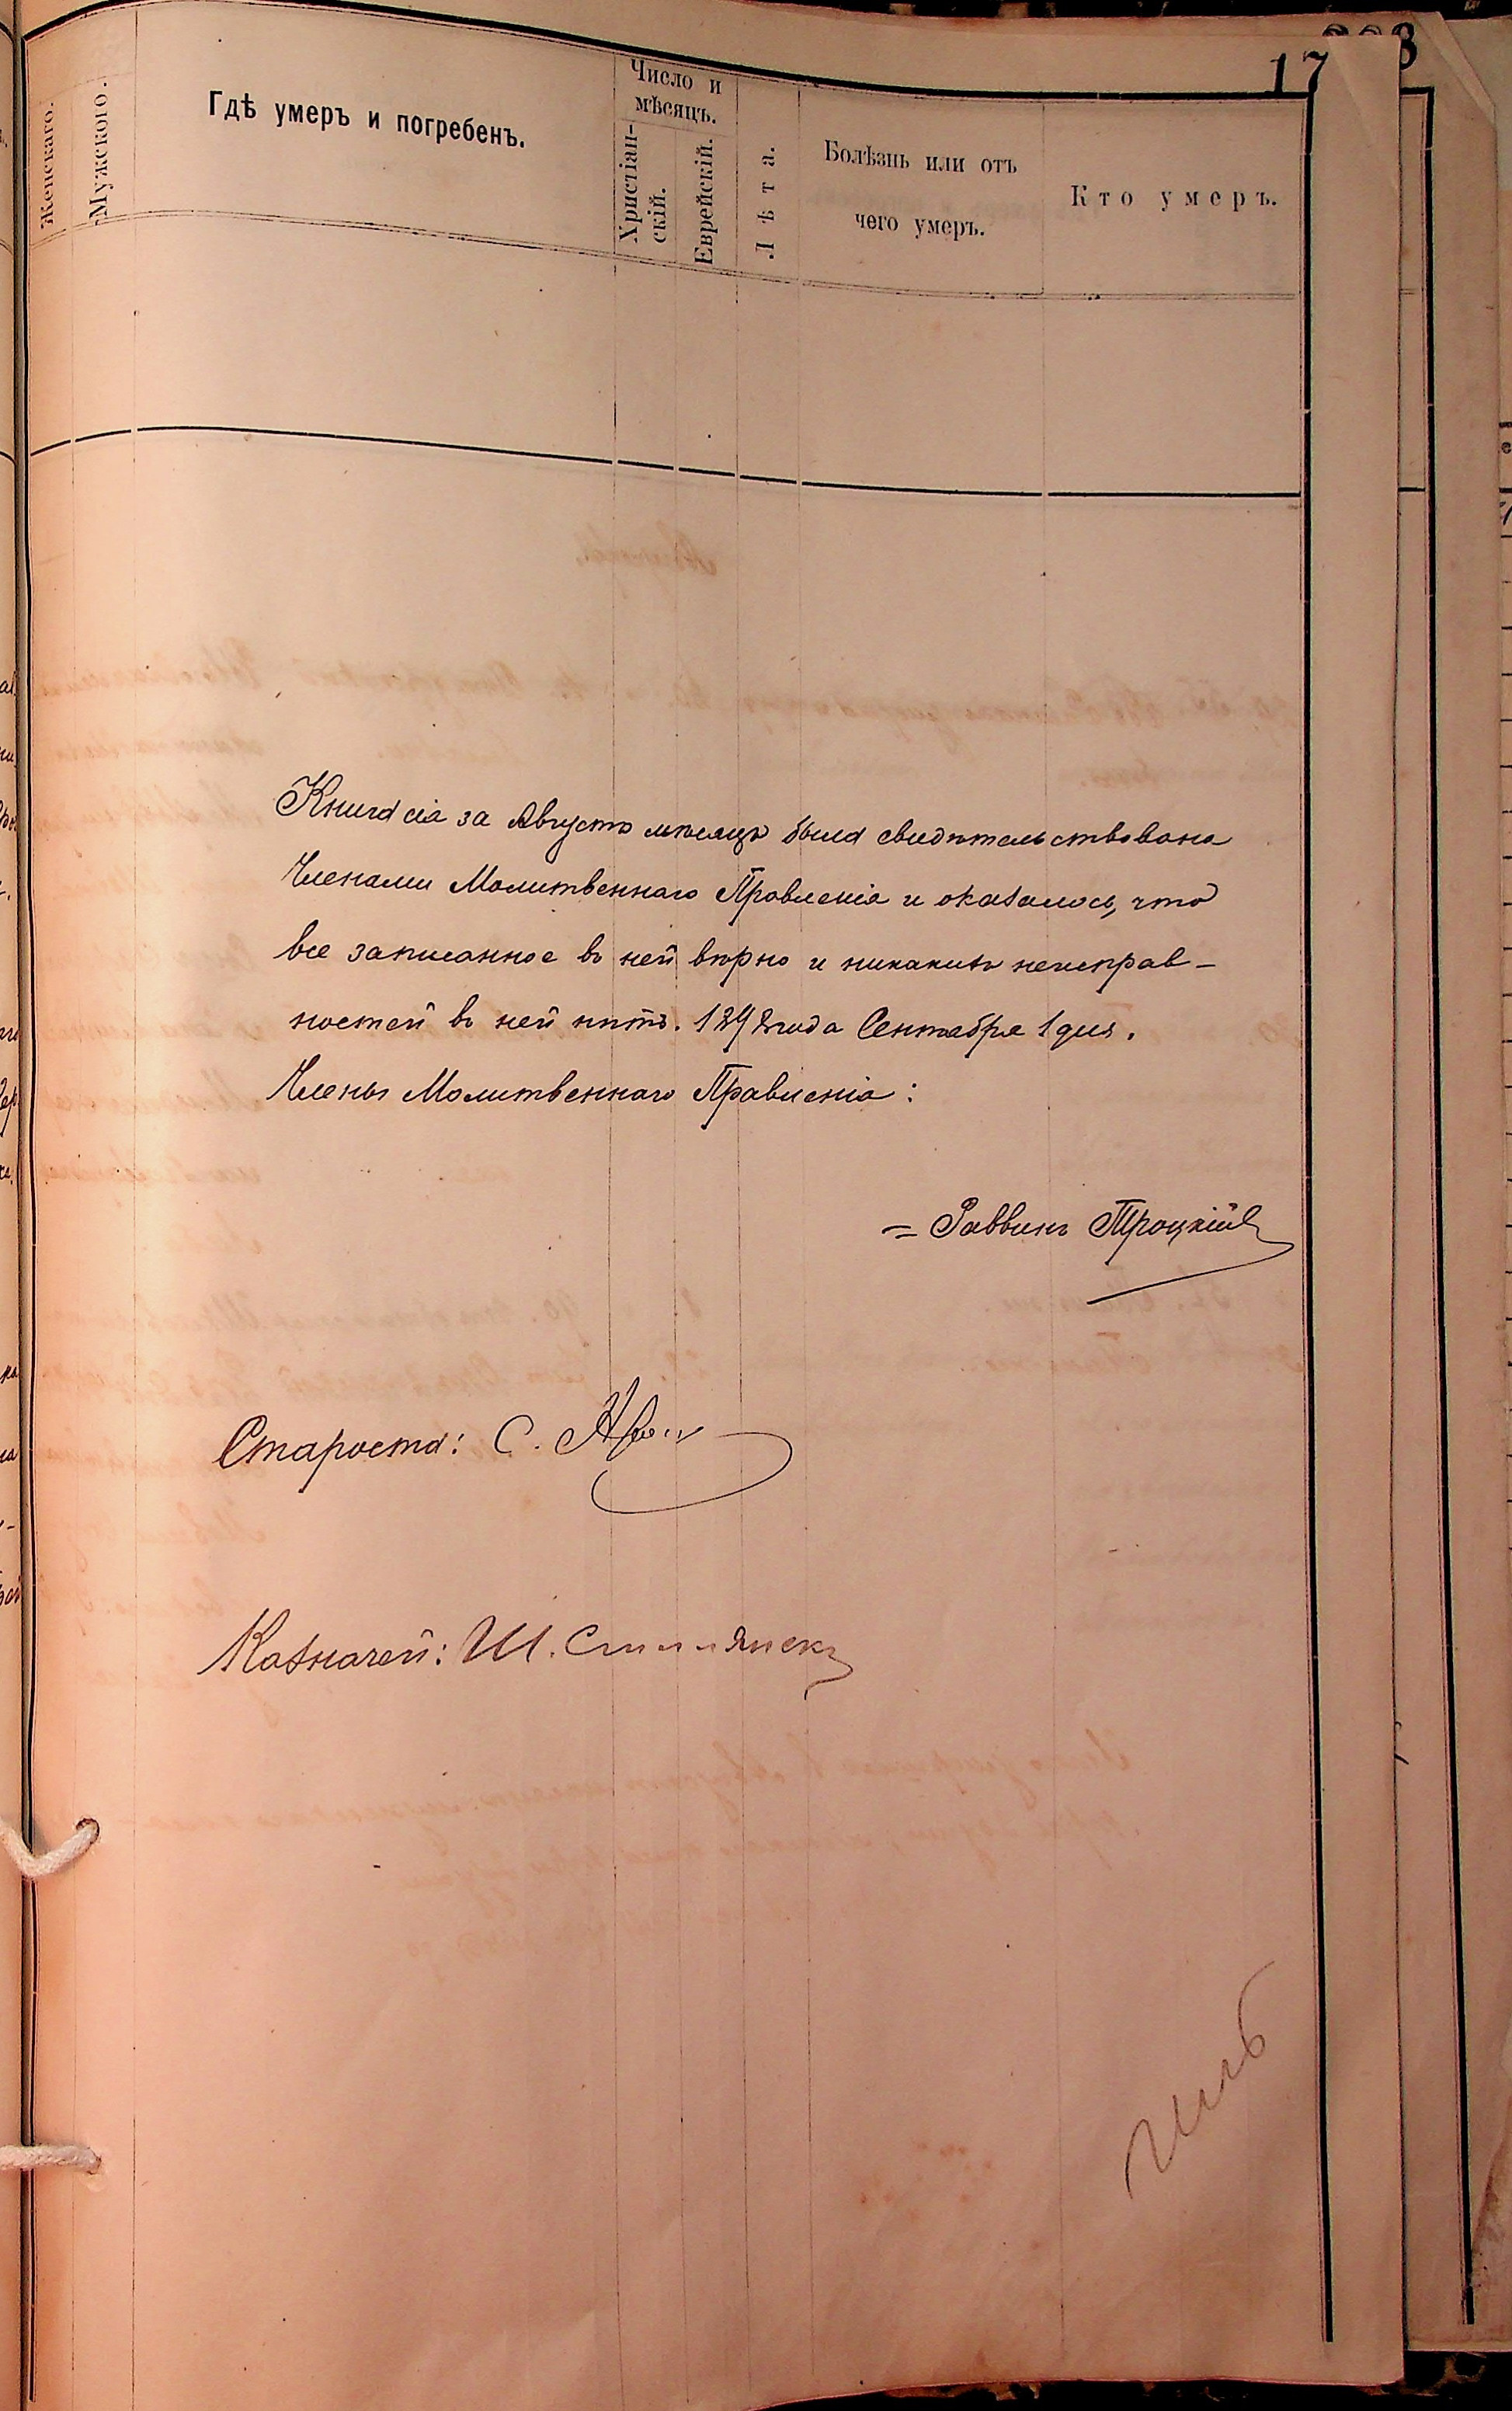 17
Женскаго.
Мужского.
Гдѣ умеръ и погребенъ.
Число и
мѣсяцъ.
Христіан-
скій.
Еврейскій.
Лѣта.
Болѣзнь или отъ
чего умеръ.
Кто умеръ.
Книга сія за Августъ мѣсяцъ была свидѣтельствована
Членами Молитвеннаго Правленія и оказалось, что
все записанное въ ней вѣрно и никакихъ неисправ-
ностей въ ней нѣтъ. 1892 года Сентября 1 дня.
Члены Молитвеннаго Правленія:
= Раввинъ Троцкій
Староста: С.
Казначей: Ш.